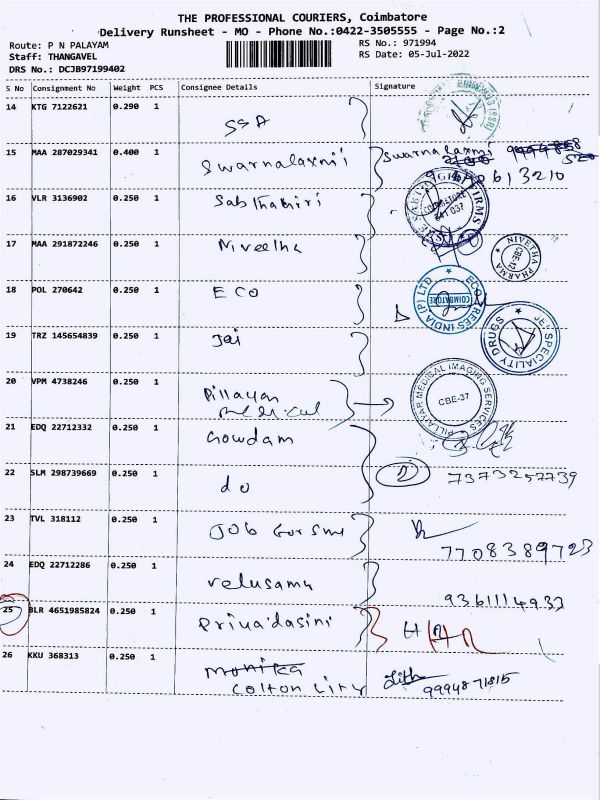 THE PROFESSIONAL COURIERS, Coimbatore
Delivery Runsheet - MO - Phone No.:0422-3505555 - Page No.:2
Route: P N PALAYAM
Staff: THANGAVEL
DRS No.: DCJB97199402
RS No.: 971994
RS Date: 05-Jul-2022
S No Consignment No Weight PCS Consignee Details Signature
14 KTG 7122621 0.290 1
SSA
15 MAA 287029341 0.400 1
Swarnalaxmi Swarnalaxmi
16 VLR 3136902 0.250 1
Sabthagiri
COIMBATORE
641 037
17 MAA 291872246 0.250 1
Nivetha
NIVETHA PHARMA
CBE-12
18 POL 270642 0.250 1
ECO
ECO TREES INDIA (P) LTD
COIMBATORE
19 TRZ 145654839 0.250 1
Jai
SPECIALITY DRUGS
20 VPM 4738246 0.250 1
Pillayar
medical
PILLAYAR MEDICAL IMAGING SERVICES
CBE-37
21 EDQ 22712332 0.250 1
Gowdam
22 SLM 298739669 0.250 1
do 2 7373257739
23 TVL 318112 0.250 1
JOB
7708389723
24 EDQ 22712286 0.250 1
Velusamy
9361114932
25 BLR 4651985824 0.250 1
Priyadasini
26 KKU 368313 0.250 1
Monika
Colton City 9994871815